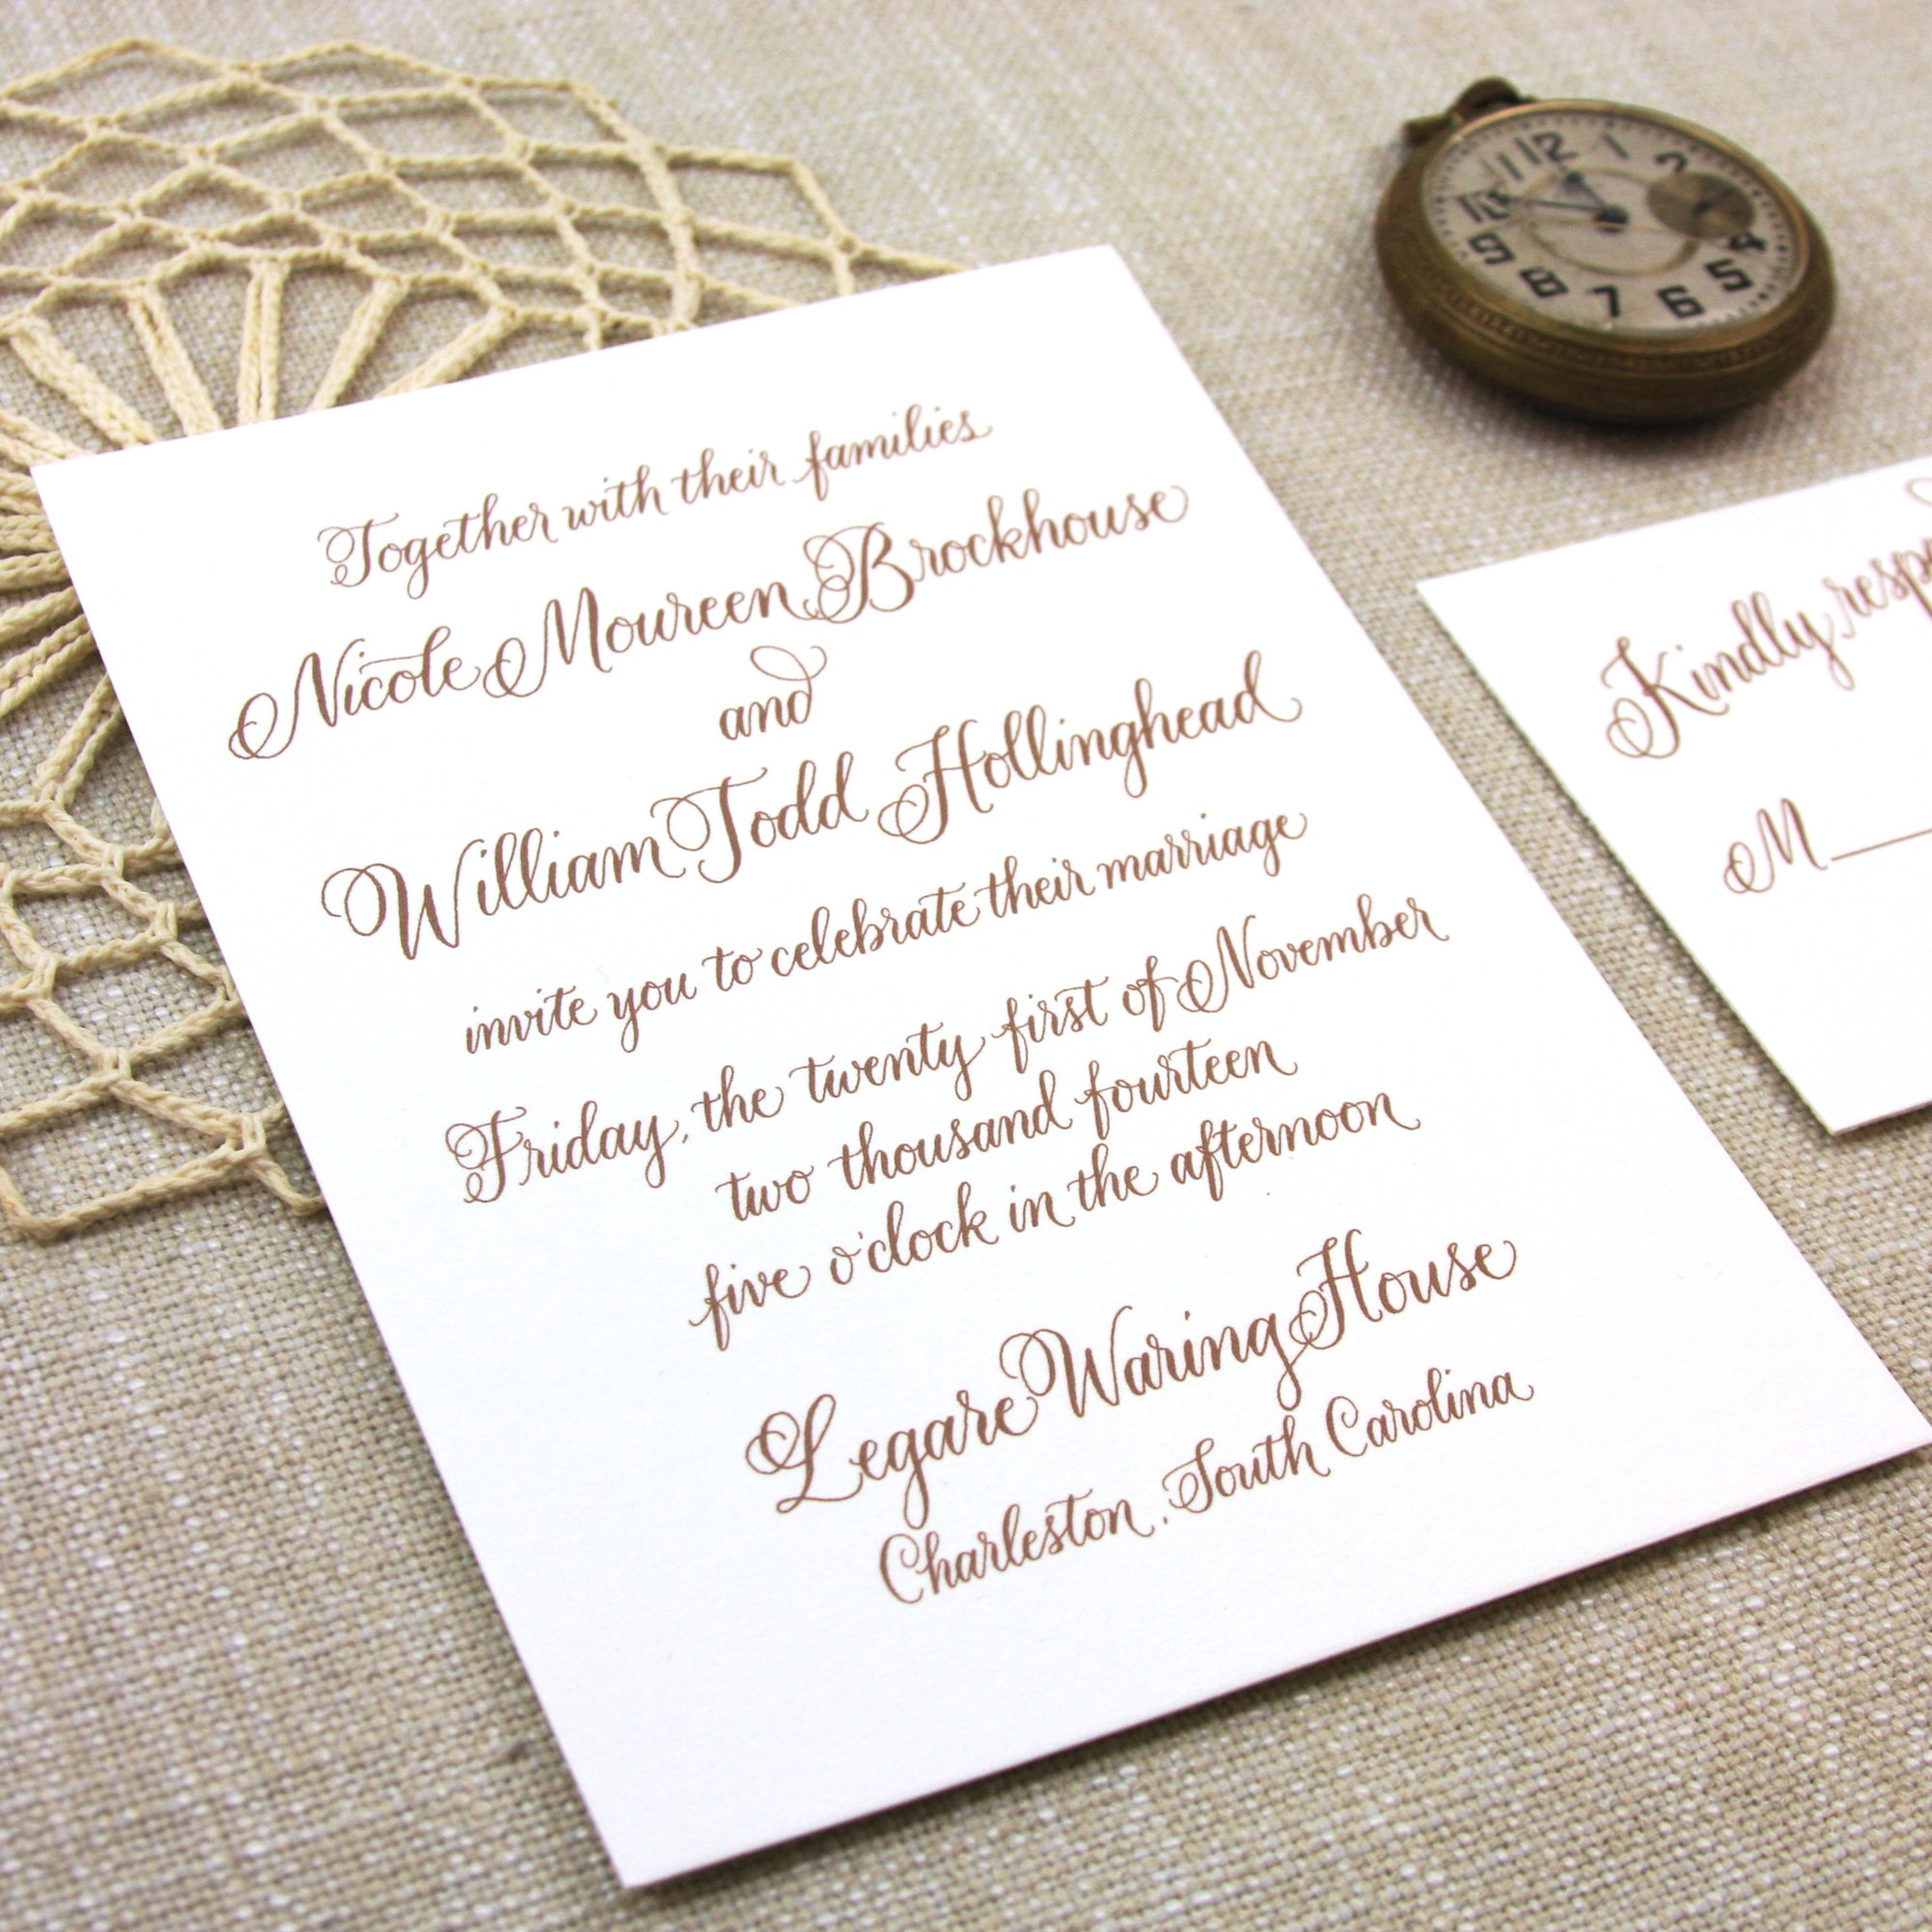 Together with their families
Nicole Moureen Brockhouse
and
William Todd Hollinghead
invite you to celebrate their marriage
Friday, the twenty first of November
two thousand fourteen
five o'clock in the afternoon
Legare Waring House
Charleston, South Carolina
Kindly resp
M
12
1
2
4
5
6
7
8
9
10
11